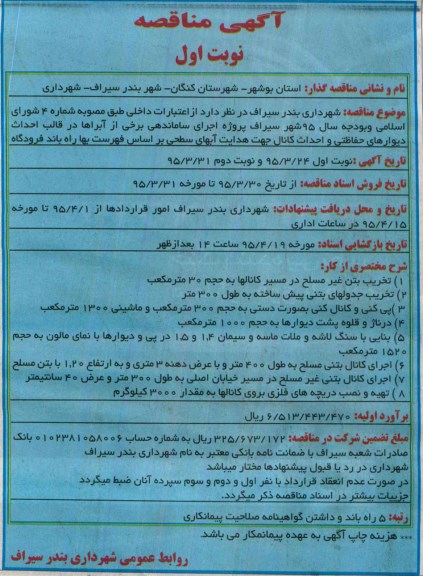 آگهی مناقصه
نوبت اول
نام و نشانی مناقصه گذار: استان بوشهر- شهرستان کنگان- شهر بندر سیراف- شهرداری
موضوع مناقصه: شهرداری بندر سیراف در نظر دارد از اعتبارات داخلی طبق مصوبه شماره ۴ شورای
اسلامی وبودجه سال ۹۵شهر سیراف پروژه اجرای ساماندهی برخی از آبراها در قالب احداث
دیوارهای حفاظتی و احداث کانال جهت هدایت آبهای سطحی بر اساس فهرست بها راه باند فرودگاه
تاریخ آگهی :نوبت اول ۹۵/۳/۲۴ و نوبت دوم ۹۵/۳/۳۱
تاریخ فروش اسناد مناقصه: از تاریخ ۹۵/۳/۳۰ تا مورخه ۹۵/۳/۳۱
تاریخ و محل دریافت پیشنهادات: شهرداری بندر سیراف امور قراردادها از ۹۵/۴/۱ تا مورخه
۹۵/۴/۱۵ در ساعات اداری
تاریخ بازگشایی اسناد: مورخه ۹۵/۴/۱۹ ساعت ۱۴ بعدازظهر
شرح مختصری از کار:
۱) تخریب بتن غیر مسلح در مسیر کانالها به حجم ۳۰ مترمکعب
۲) تخریب جدولهای بتنی پیش ساخته به طول ۳۰۰ متر
۳)پی کنی و کانال کنی بصورت دستی به حجم ۳۰۰ مترمکعب و ماشینی ۱۳۰۰ مترمکعب
۴) درناژ و قلوه پشت دیوارها به حجم ۱۰۰۰ مترمکعب
۵) بنایی با سنگ لاشه و ملات ماسه و سیمان ۱،۴ و ۱،۵ در پی و دیوارها با نمای مالون به حجم
۱۵۲۰ مترمکعب
۶) اجرای کانال بتنی مسلح به طول ۴۰۰ متر و با عرض دهنه ۳ متری و به ارتفاع ۱،۲۰ با بتن مسلح
۷) اجرای کانال بتنی غیر مسلح در مسیر خیابان اصلی به طول ۳۰۰ متر و عرض ۴۰ سانتیمتر
۸ ) تهیه و نصب دریچه های فلزی بروی کانالها به مقدار ۳۰۰۰ کیلوگرم
برآورد اولیه: ۶/۵۱۳/۴۴۳/۴۷۰ ریال
مبلغ تضمین شرکت در مناقصه: ۳۲۵/۶۷۳/۱۷۲ ریال به شماره حساب ۰۱۰۲۳۸۱۰۵۸۰۰۶ بانک
صادرات شعبه سیراف یا ضمانت نامه بانکی معتبر به نام شهرداری بندر سیراف
شهرداری در رد یا قبول پیشنهادها مختار میباشد
در صورت عدم انعقاد قرارداد با نفر اول و دوم و سوم سپرده آنان ضبط میگردد
جزییات بیشتر در اسناد مناقصه ذکر میگردد.
رتبه: ۵ راه باند و داشتن گواهینامه صلاحیت پیمانکاری
*** هزینه چاپ آگهی به عهده پیمانمکار می باشد.
روابط عمومی شهرداری بندر سیراف